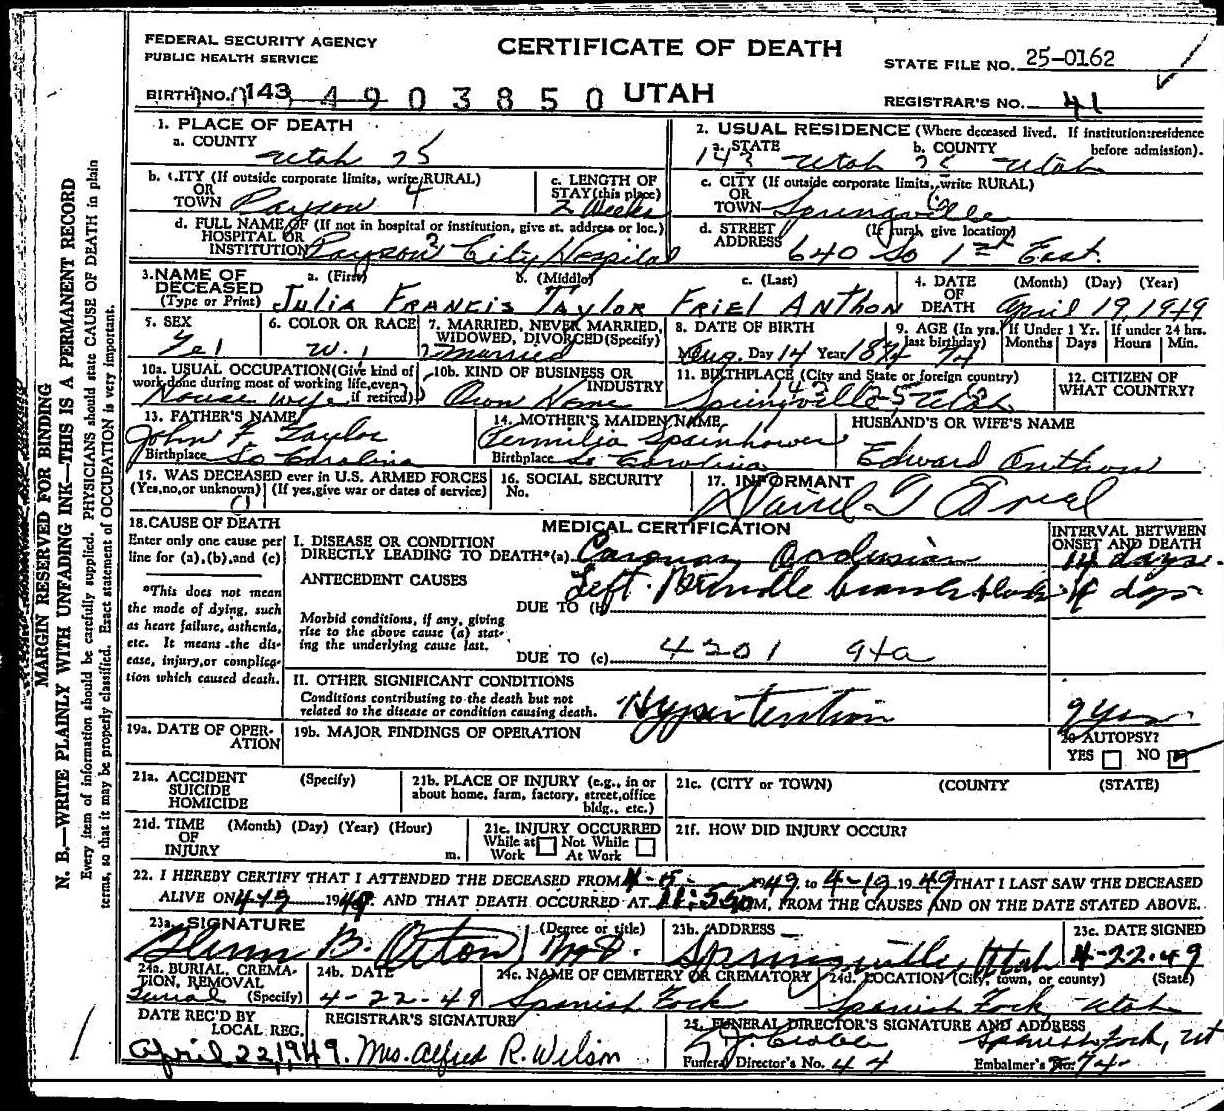 FEDERAL SECURITY AGENCY
PUBLIC HEALTH SERVICE
CERTIFICATE OF DEATH
STATE FILE NO. 25-0162
BIRTH NO. 143 4903850 UTAH
REGISTRAR'S NO. 41
MARGIN RESERVED FOR BINDING
N. B.—WRITE PLAINLY WITH UNFADING INK—THIS IS A PERMANENT RECORD
Every item of information should be carefully supplied. PHYSICIANS should state CAUSE OF DEATH in plain
terms, so that it may be properly classified. Exact statement of OCCUPATION is very important.
1. PLACE OF DEATH
a. COUNTY
Utah 25
2. USUAL RESIDENCE (Where deceased lived. If institution: residence
before admission).
a. STATE b. COUNTY
143 Utah 25 Utah
b. CITY (If outside corporate limits, write RURAL)
OR
TOWN Payson 4
c. LENGTH OF
STAY (this place)
2 Weeks
c. CITY (If outside corporate limits, write RURAL)
OR
TOWN Springville
d. FULL NAME OF (If not in hospital or institution, give st. address or loc.)
HOSPITAL OR
INSTITUTION Payson 3 City Hospital
d. STREET (If rural, give location)
ADDRESS 640 So 1st East.
3. NAME OF DECEASED
(Type or Print)
a. (First) b. (Middle) c. (Last)
Julia Francis Taylor Friel Anthon
4. DATE OF DEATH
(Month) (Day) (Year)
April 19, 1949
5. SEX
Fel
6. COLOR OR RACE
W. 1
7. MARRIED, NEVER MARRIED,
WIDOWED, DIVORCED (Specify)
Married
8. DATE OF BIRTH
Aug. Day 14 Year 1874
9. AGE (In yrs. last birthday)
74
If Under 1 Yr.
Months Days
If under 24 hrs.
Hours Min.
10a. USUAL OCCUPATION (Give kind of
work done during most of working life, even
if retired)
House wife
10b. KIND OF BUSINESS OR
INDUSTRY
Own Home
11. BIRTHPLACE (City and State or foreign country)
Springville, Utah
12. CITIZEN OF
WHAT COUNTRY?
13. FATHER'S NAME
John F. Taylor
Birthplace So Carolina
14. MOTHER'S MAIDEN NAME
Permilia Spainhower
Birthplace So Carolina
HUSBAND'S OR WIFE'S NAME
Edward Anthon
15. WAS DECEASED ever in U.S. ARMED FORCES
(Yes, no, or unknown) (If yes, give war or dates of service)
0
16. SOCIAL SECURITY
No.
17. INFORMANT
18. CAUSE OF DEATH
Enter only one cause per
line for (a), (b), and (c)
*This does not mean
the mode of dying, such
as heart failure, asthenia,
etc. It means the dis-
ease, injury, or complica-
tion which caused death.
MEDICAL CERTIFICATION
INTERVAL BETWEEN
ONSET AND DEATH
I. DISEASE OR CONDITION
DIRECTLY LEADING TO DEATH*(a) Coronary Occlusion 14 days
ANTECEDENT CAUSES
Left Bundle branch block 14 days
DUE TO (b)
Morbid conditions, if any, giving
rise to the above cause (a) stat-
ing the underlying cause last.
DUE TO (c) 4201 94a
II. OTHER SIGNIFICANT CONDITIONS
Conditions contributing to the death but not
related to the disease or condition causing death.
Hypertention 9 yrs.
19a. DATE OF OPER-
ATION
19b. MAJOR FINDINGS OF OPERATION
20 AUTOPSY?
YES NO
21a. ACCIDENT (Specify)
SUICIDE
HOMICIDE
21b. PLACE OF INJURY (e.g., in or
about home, farm, factory, street, office
bldg., etc.)
21c. (CITY or TOWN) (COUNTY) (STATE)
21d. TIME (Month) (Day) (Year) (Hour)
OF
INJURY m.
21e. INJURY OCCURRED
While at Work Not While At Work
21f. HOW DID INJURY OCCUR?
22. I HEREBY CERTIFY THAT I ATTENDED THE DECEASED FROM 4-5- 1949, to 4-19 1949 THAT I LAST SAW THE DECEASED
ALIVE ON 4-19 1949. AND THAT DEATH OCCURRED AT 11:55 M, FROM THE CAUSES AND ON THE DATE STATED ABOVE.
23a. SIGNATURE (Degree or title)
Glenn B. Orton M.D.
23b. ADDRESS
Springville, Utah
23c. DATE SIGNED
4-22-49
24a. BURIAL, CREMA-
TION, REMOVAL
(Specify)
Burial
24b. DATE
4-22-49
24c. NAME OF CEMETERY OR CREMATORY
Spanish Fork
24d. LOCATION (City, town, or county) (State)
Spanish Fork Utah
DATE REC'D BY
LOCAL REG.
April 22, 1949.
REGISTRAR'S SIGNATURE
Mrs. Alfred R. Wilson
25. FUNERAL DIRECTOR'S SIGNATURE AND ADDRESS
Spanish Fork, Ut
Funeral Director's No. 44 Embalmer's No. 74-